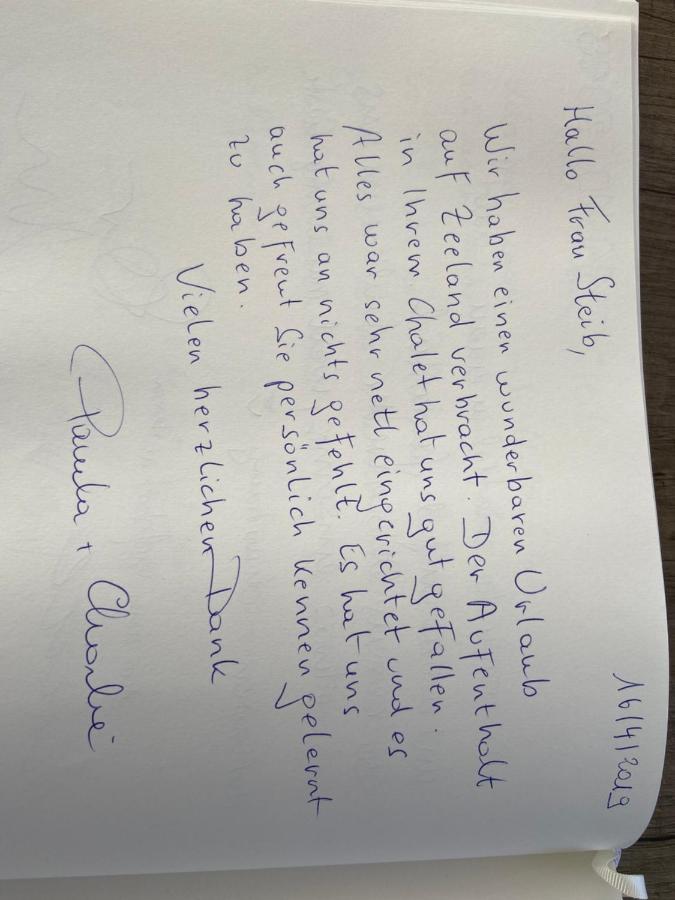 16/4/2019
Hallo Frau Steib,
Wir haben einen wunderbaren Urlaub
auf Zeeland verbracht. Der Aufenthalt
in Ihrem Chalet hat uns gut gefallen.
Alles war sehr nett eingerichtet und es
hat uns an nichts gefehlt. Es hat uns
auch gefreut Sie persönlich kennen gelernt
zu haben.
Vielen herzlichen Dank
Paula + Charlie